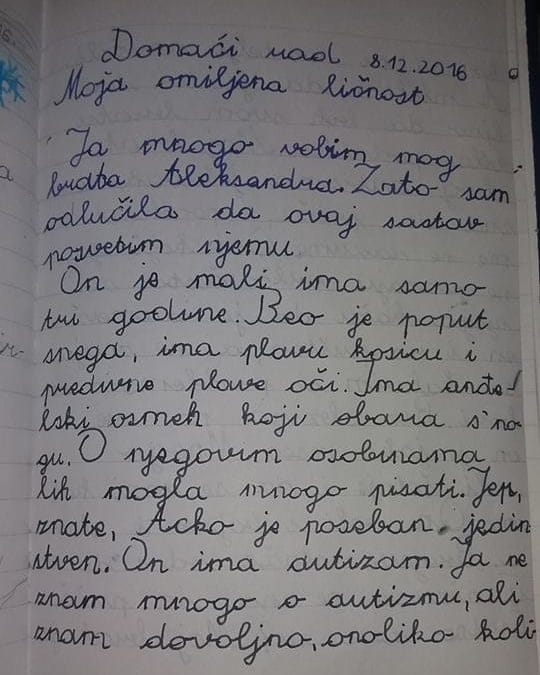 Domaći rad 8.12.2016
Moja omiljena ličnost
Ja mnogo volim mog
brata Aleksandra. Zato sam
odlučila da ovaj sastav
posvetim njemu
On je mali ima samo
tri godine. Beo je poput
snega, ima plavu kosicu i
predivne plave oči. Ima anđe-
lski osmeh koji obara s' no-
gu. O njegovim osobinama
bih mogla mnogo pisati. Jer,
znate, Acko je poseban. jedin
stven. On ima autizam. Ja ne
znam mnogo o autizmu, ali
znam dovoljno, onoliko koli